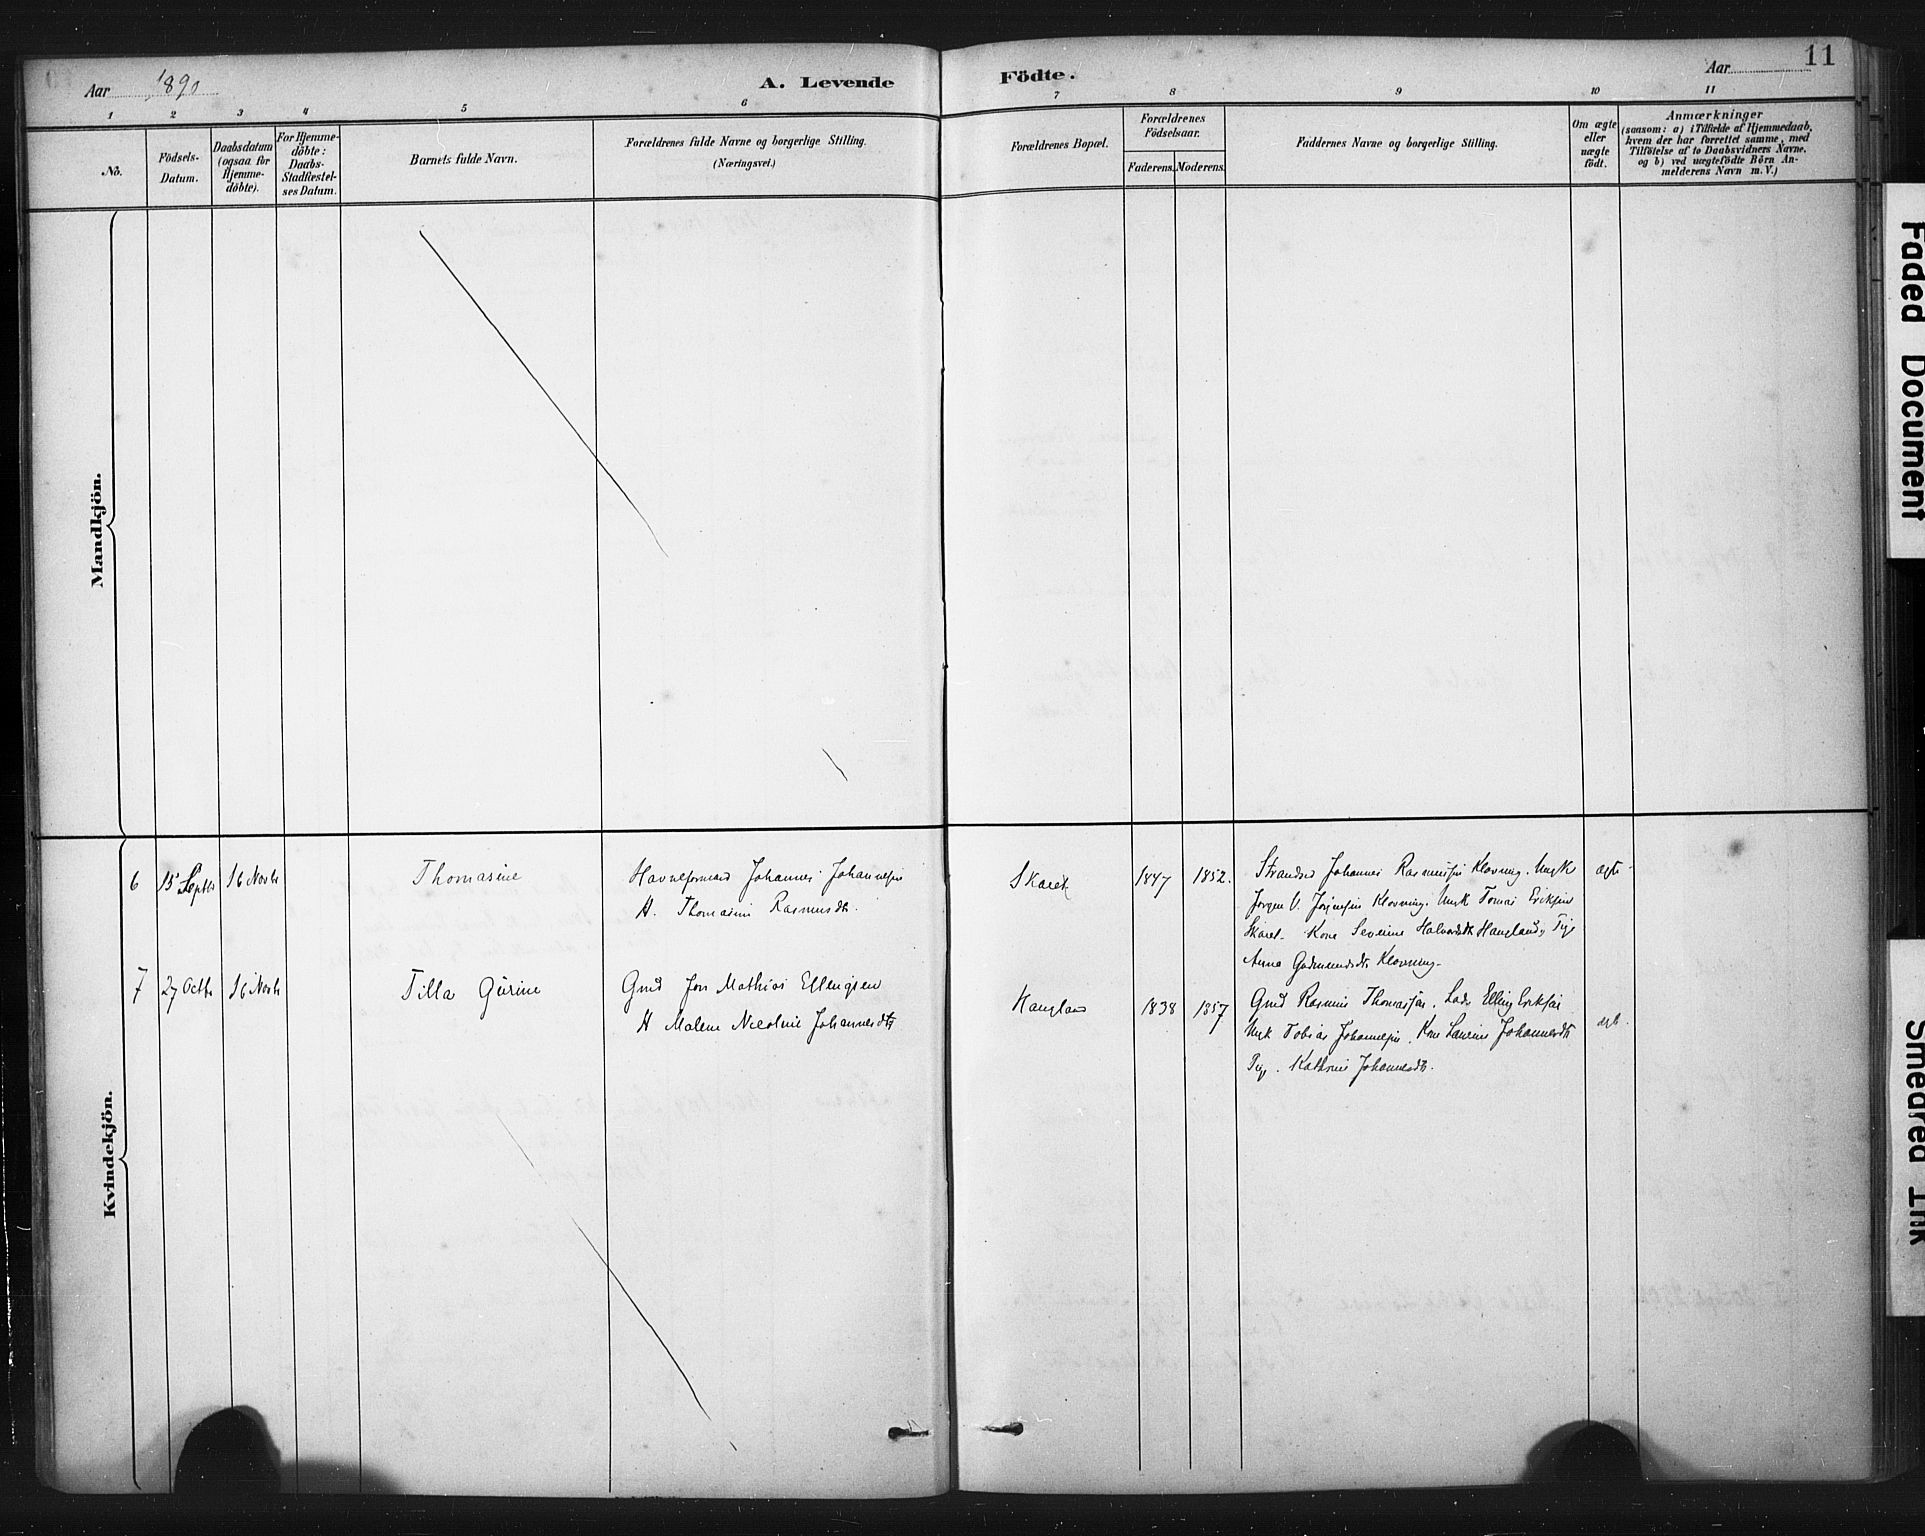 11
Aar 1890
A. Levende Födte.
Aar
1 2 3 4 5 6 7 8 9 10 11
No.
Födsels-
Datum.
Daabsdatum
(ogsaa for
Hjemme-
döbte).
For Hjemme-
döbte:
Daabs-
Stadfæstel-
ses Datum.
Barnets fulde Navn.
Forældrenes fulde Navne og borgerlige Stilling.
(Næringsvei.)
Forældrenes Bopæl.
Forældrenes
Födselsaar.
Faderens. Moderens.
Faddernes Navne og borgerlige Stilling.
Om ægte
eller
uægte
födt.
Anmærkninger
(saasom: a) i Tilfælde af Hjemmedaab,
hvem der har forrettet samme, med
Tilföielse af to Daabsvidners Navne,
og b) ved uægtefödte Börn An-
melderens Navn m. V.)
Mandkjön.
Kvindekjön.
6 15 Septbr 16 Novbr Thomasine Havneformand Johannes Johannessen
H. Thomasine Rasmusdtr.
Skaret 1847 1852. Strandsd Johannes Rasmussen Klovning. Ungk
Jørgen V. Klovning. Ungk Tomas Eriksen
Skaret. Kone Severine Halvorsdtr Haugland, Pige
Anna Gudmundsdtr Klovning.
ægte
7 27 Octbr 16 Novbr Tilla Gurine Gmd Jon Mathias Ellengsen
H Malene Nicoline Johannesdtr
Haugland 1838 1857 Gmd Rasmus Thomassen. Lods Elling Eriksen
Ungk Tobias Johannessen. Kone Laurine Johannesdtr
Pige. Kathrine Johannesdtr.
ægte.
Faded Document
Smeared Ink